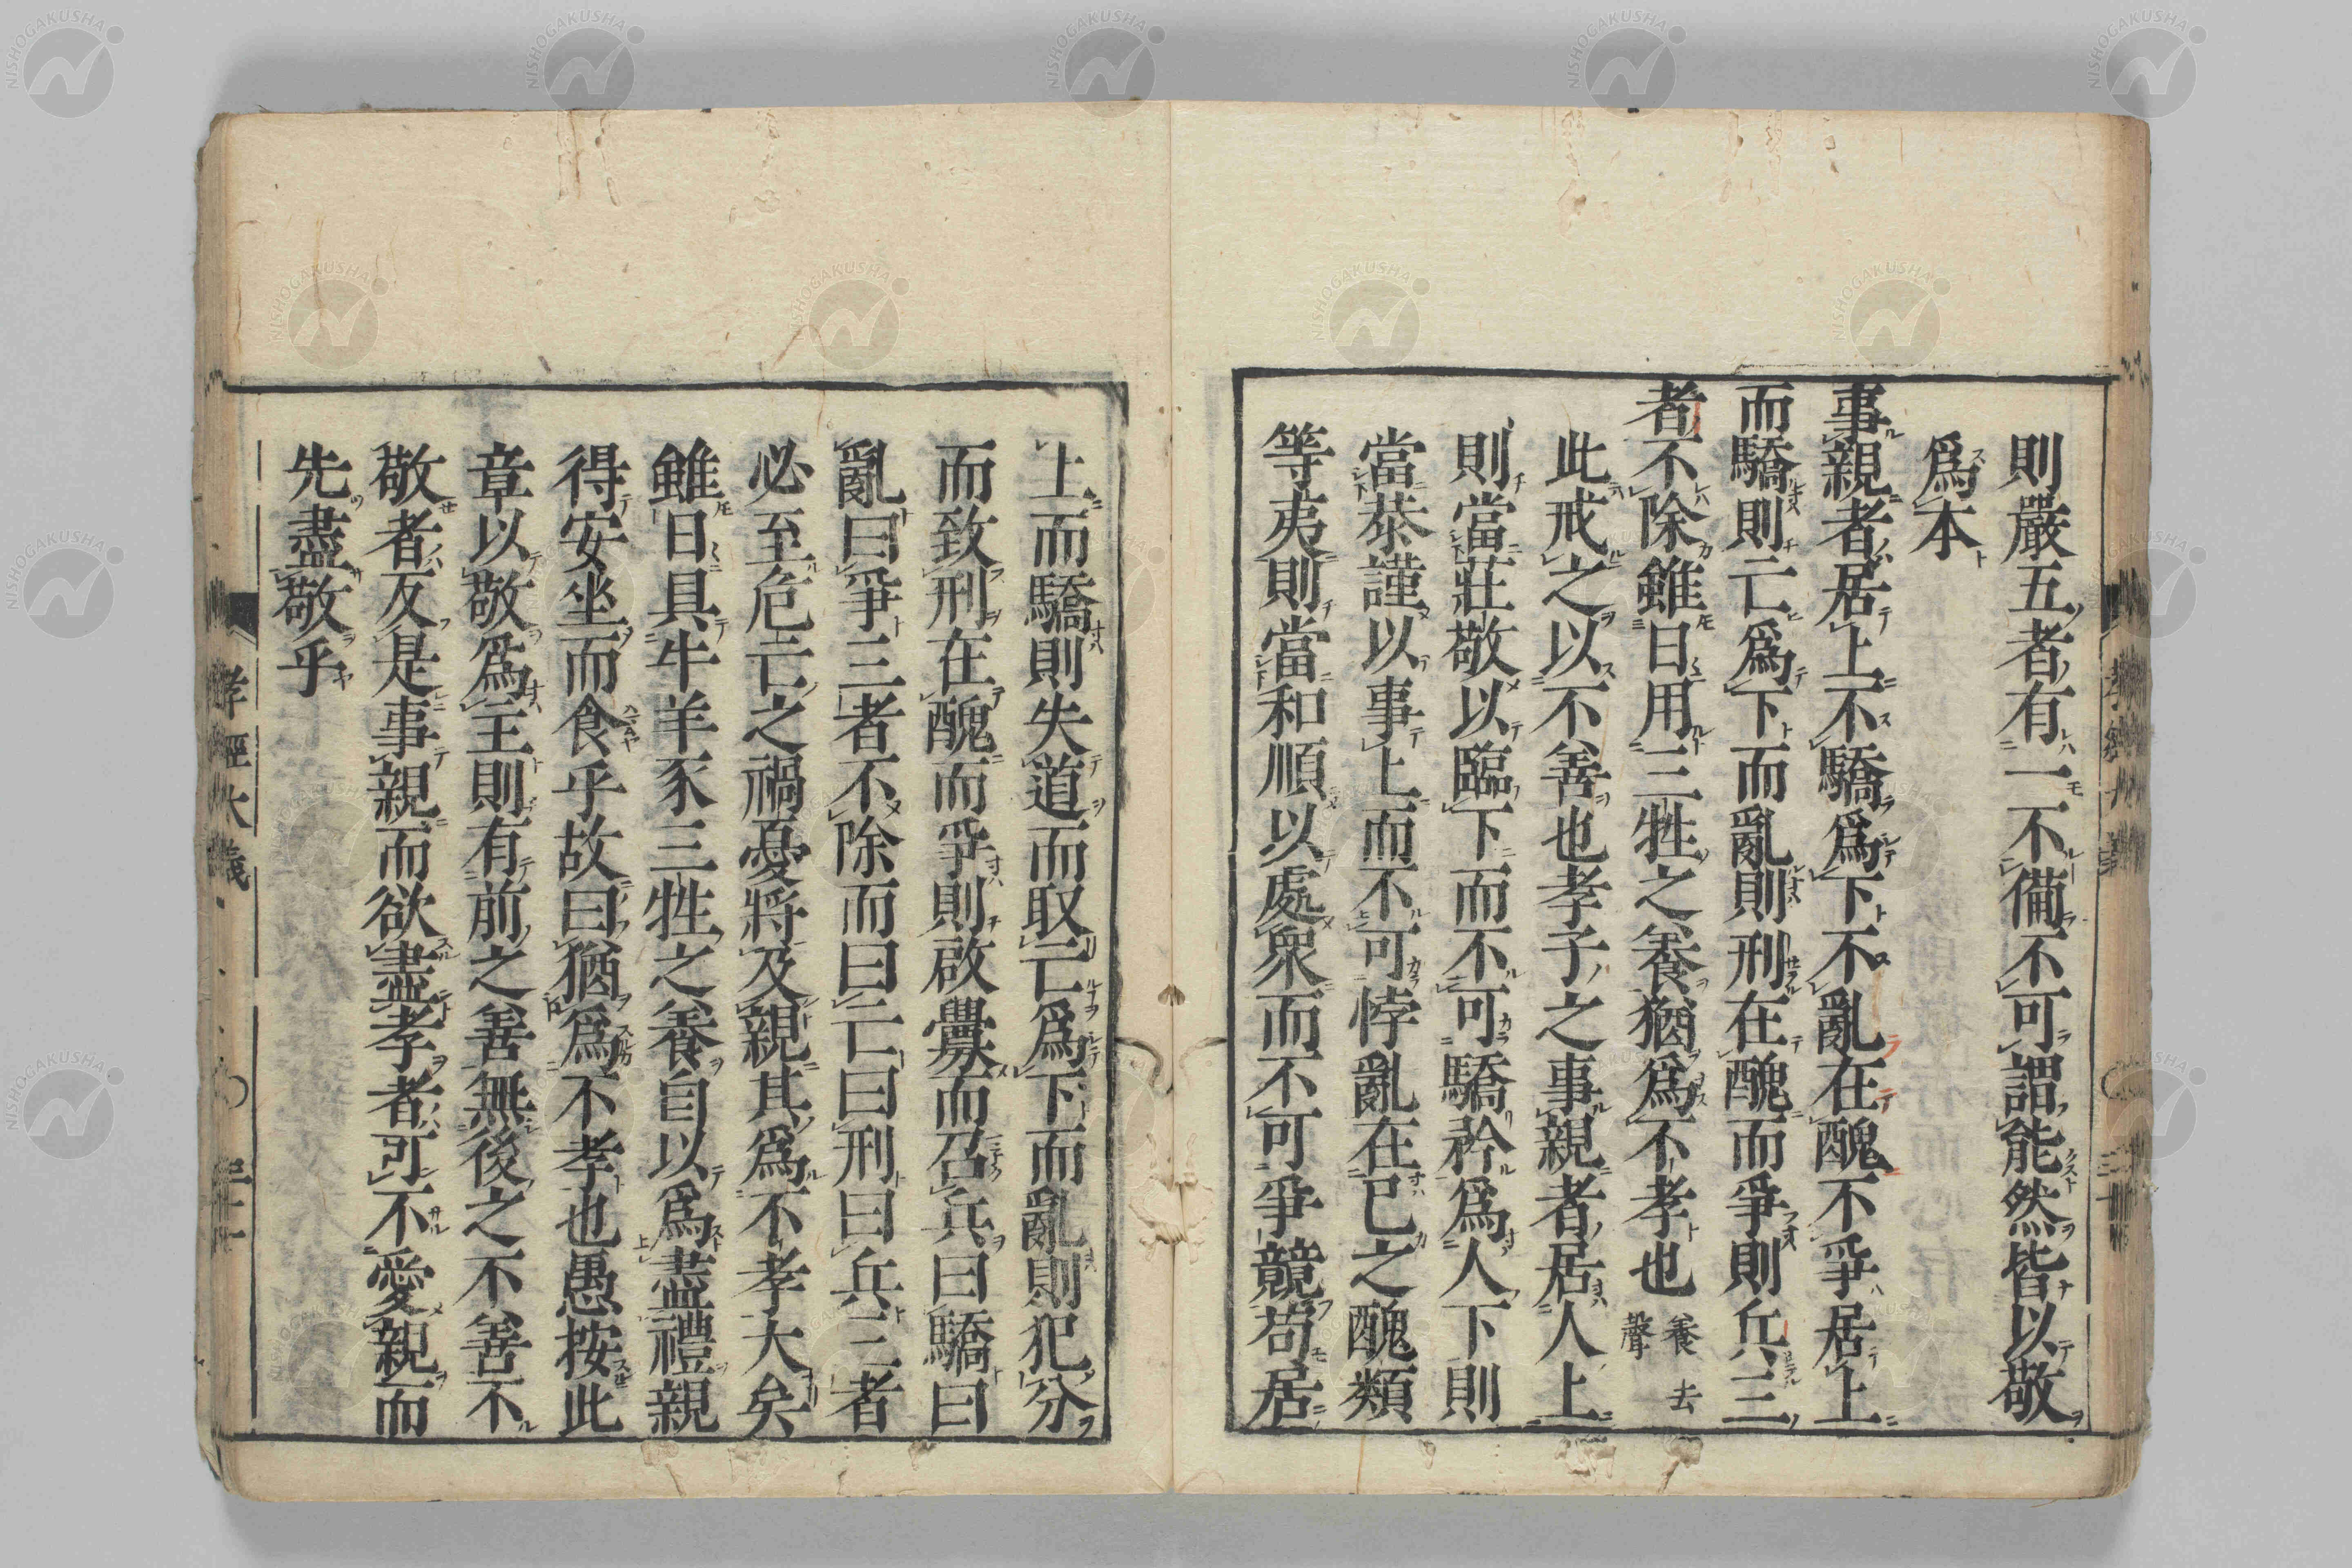 則嚴五者有一不備不可謂能然皆以敬
爲本
事親者居上不驕爲下不亂在醜不爭居上
而驕則亡爲下而亂則刑在醜而爭則兵三
者不除雖日用三牲之養猶爲不孝也養去聲
此戒之以不善也孝子之事親者居人上
則當莊敬以臨下而不可驕矜爲人下則
當恭謹以事上而不可悖亂在己之醜類
等夷則當和順以處衆而不可爭競苟居
上而驕則失道而取亡爲下而亂則犯分
而致刑在醜而爭則啟釁而召兵曰驕曰
亂曰爭三者不除而曰亡曰刑曰兵三者
必至危亡之禍憂將及親其爲不孝大矣
雖日具牛羊豕三牲之養自以爲盡禮親
得安坐而食乎故曰猶爲不孝也愚按此
章以敬爲主則有前之善無後之不善不
敬者反是事親而欲盡孝者可不愛親而
先盡敬乎
孝經大義